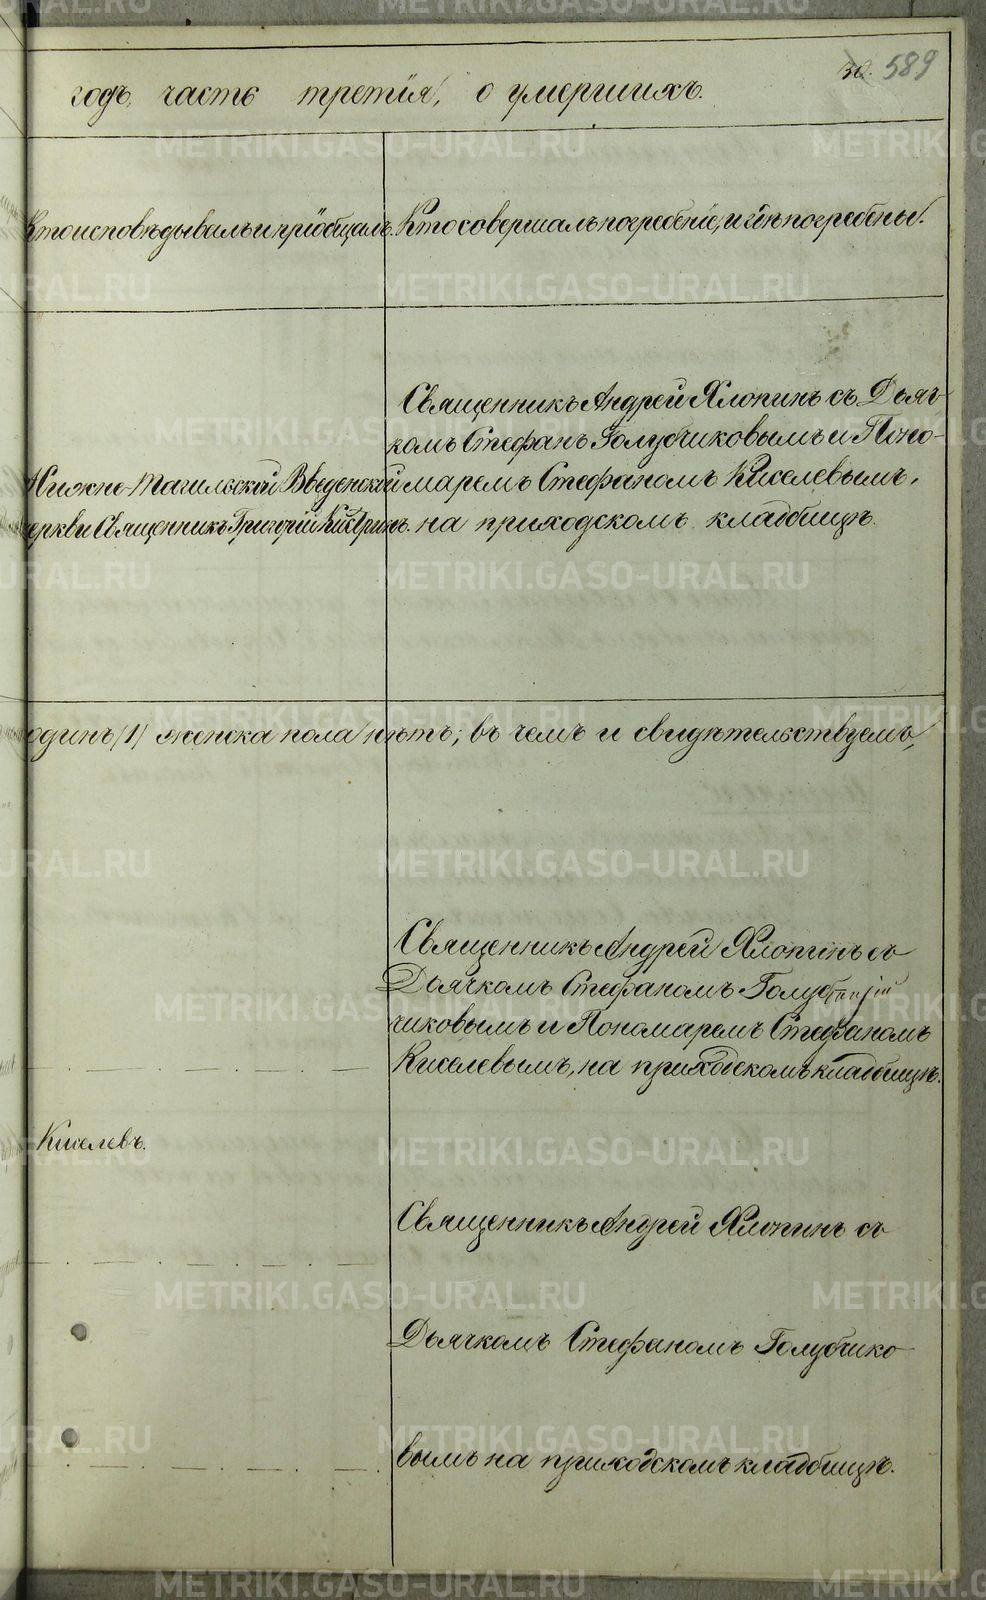 30. 589
годъ, часть третія, о умершихъ.
Кто исповѣдывалъ и пріобщалъ.
Кто совершалъ погребеніе, и гдѣ погребены.
Нижне-Тагильской Введенской
церкви Священникъ Григорій
Священникъ Андрей Хлопинъ съ Дьяч-
комъ Стефанъ Голубчиковымъ и Поно-
маремъ Стефаномъ Киселевымъ,
на приходскомъ кладбищѣ.
одинъ /1/ женска пола нѣтъ; въ чемъ и свидѣтельствуемъ,
Священникъ Андрей Хлопинъ съ
Дьячкомъ Стефаномъ Голуб
чиковымъ и Пономаремъ Стефаномъ
Киселевымъ, на приходскомъ кладбищѣ.
Киселевъ.
Священникъ Андрей Хлопинъ съ
Дьячкомъ Стефаномъ Голубчико
вымъ на приходскомъ кладбищѣ.
METRIKI.GASO-URAL.RU